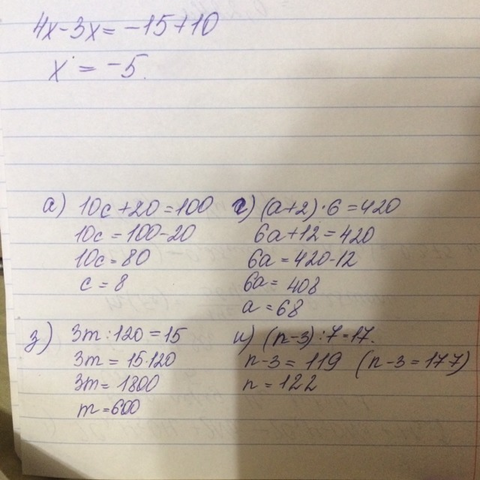 4x-3x=-15+10
x=-5.
а) 10c+20=100
10c=100-20
10c=80
c=8
г) (a+2)·6=420
6a+12=420
6a=420-12
6a=408
a=68
з) 3m:120=15
3m=15·120
3m=1800
m=600
и) (n-3):7=17.
n-3=119 (n-3=17·7)
n=122